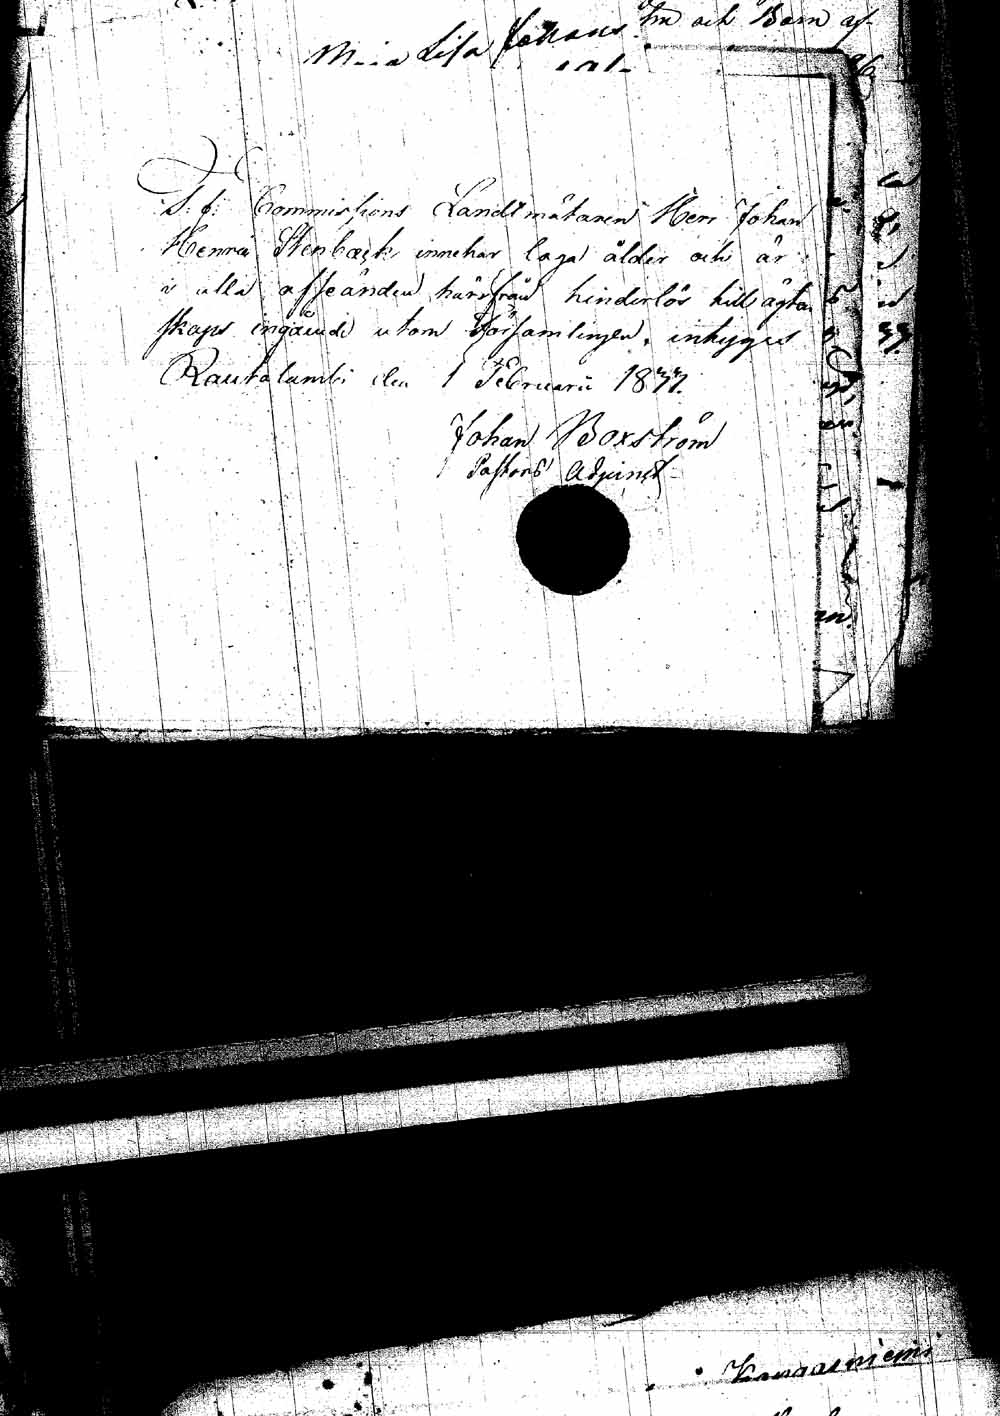 Lisa Johans
och Barn af
T. f. Commissions Landtmätaren Herr Johan
Henric Stenbäck, innehar laga ålder och är
i alla afseenden härifrån hinderlös till ägten
skaps ingående utom Församlingen, intygas
Rautalambi den 1 Februarii 1837.
Johan Boxström
Pastors Adjunct
Kangasniemi